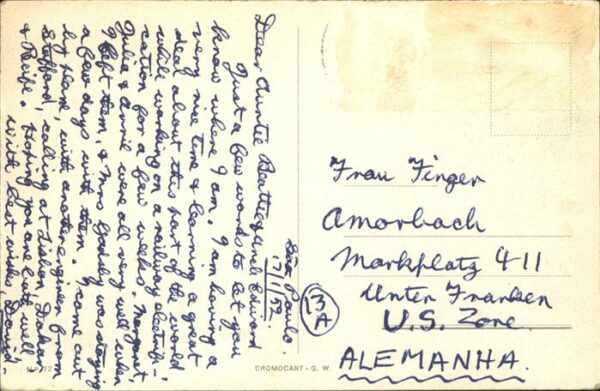 São Paulo.
17/1/59
Dear Auntie Beattie and Edward
Just a few words to let you
know where I am. I am having a
very nice time & learning a great
deal about this part of the world
while working on a railway electrifi-
cation for a few weeks. Margaret,
Julia & Anril were all very well when
I left them, & Mrs was staying
a few days with them. I came out
by plane, with another engineer from
Stafford, calling at Lisbon Dakar
& Recife. Hoping you are both well
with best wishes David.
13
A
Frau Finger
Amorbach
Marktplatz 411
Unter Franken
U.S. Zone
ALEMANHA.
CROMOCART - G. W.